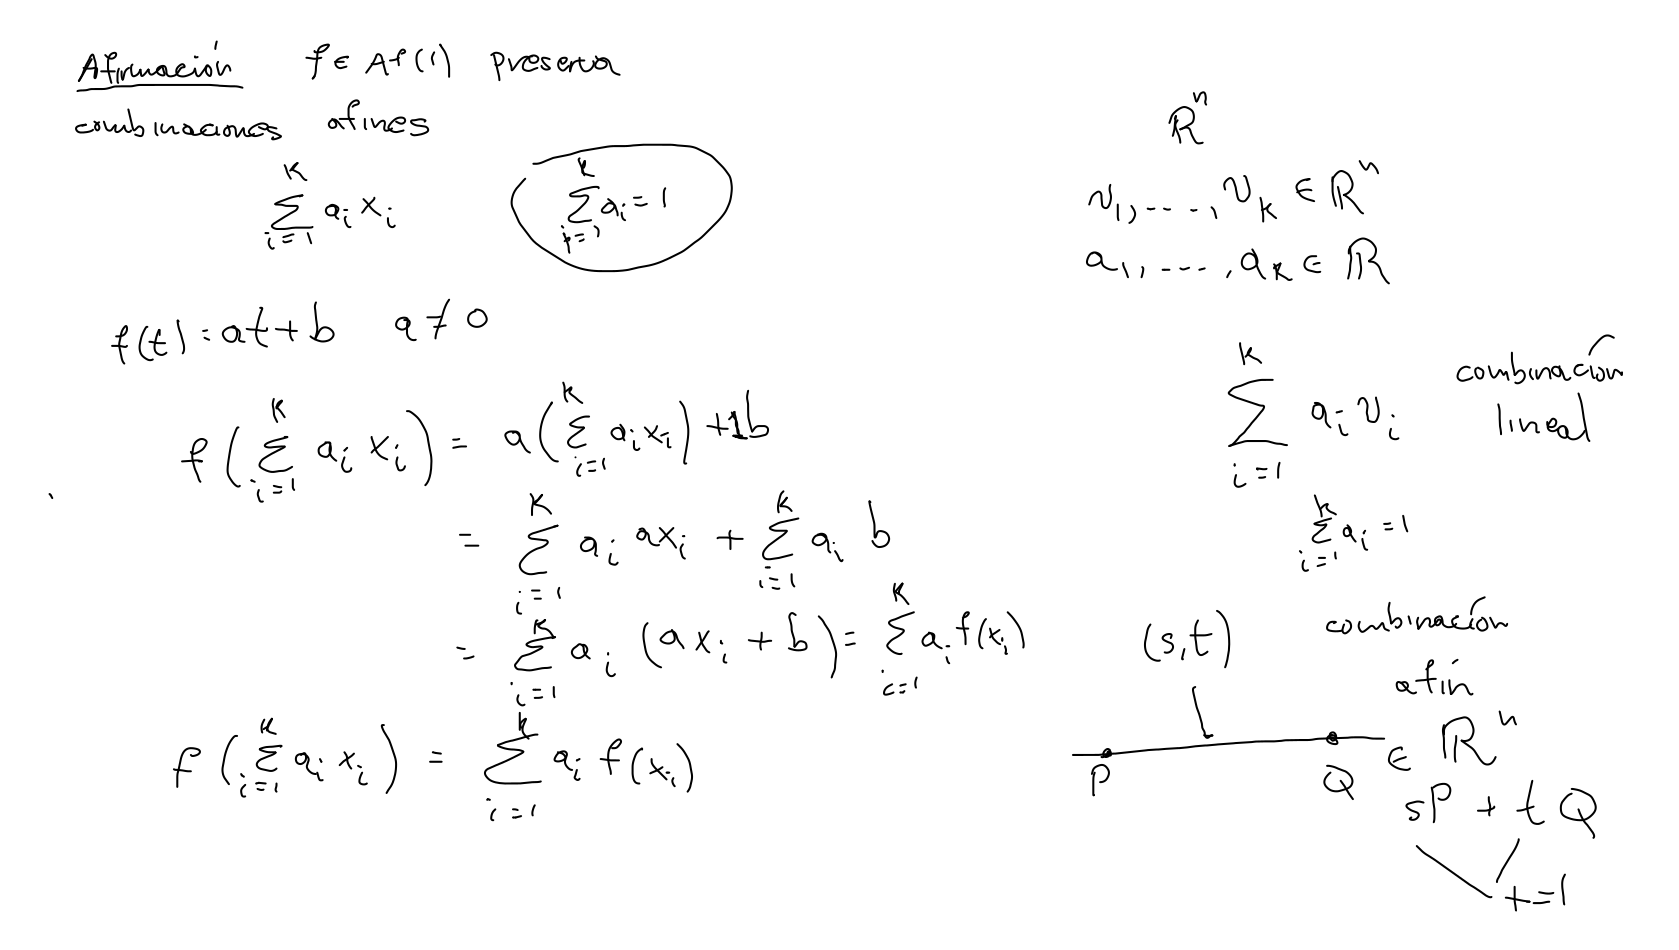 Afirmación f ∈ Af(1) preserva
combinaciones afines
\sum_{i=1}^{k} a_i x_i \sum_{i=1}^{k} a_i = 1
f(t) = at + b a ≠ 0
f(\sum_{i=1}^{k} a_i x_i) = a(\sum_{i=1}^{k} a_i x_i) + 1b
= \sum_{i=1}^{k} a_i ax_i + \sum_{i=1}^{k} a_i b
= \sum_{i=1}^{k} a_i (ax_i + b) = \sum_{i=1}^{k} a_i f(x_i)
f(\sum_{i=1}^{k} a_i x_i) = \sum_{i=1}^{k} a_i f(x_i)
ℝ^n
v_1, ...., v_k ∈ ℝ^n
a_1, ...., a_k ∈ ℝ
\sum_{i=1}^{k} a_i v_i combinación
lineal
\sum_{i=1}^{k} a_i = 1
combinación
afín
(s,t)
P Q ∈ ℝ^n
sP + tQ
+ = 1